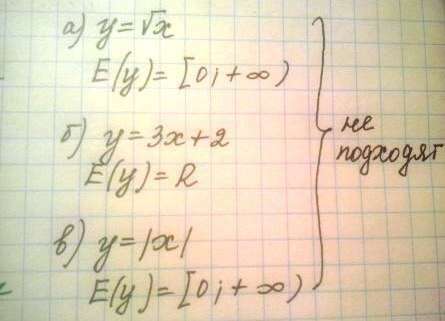 а) y = √x
E(y) = [0; + ∞)
б) y = 3x + 2
E(y) = R
в) y = |x|
E(y) = [0; + ∞)
не
подходят